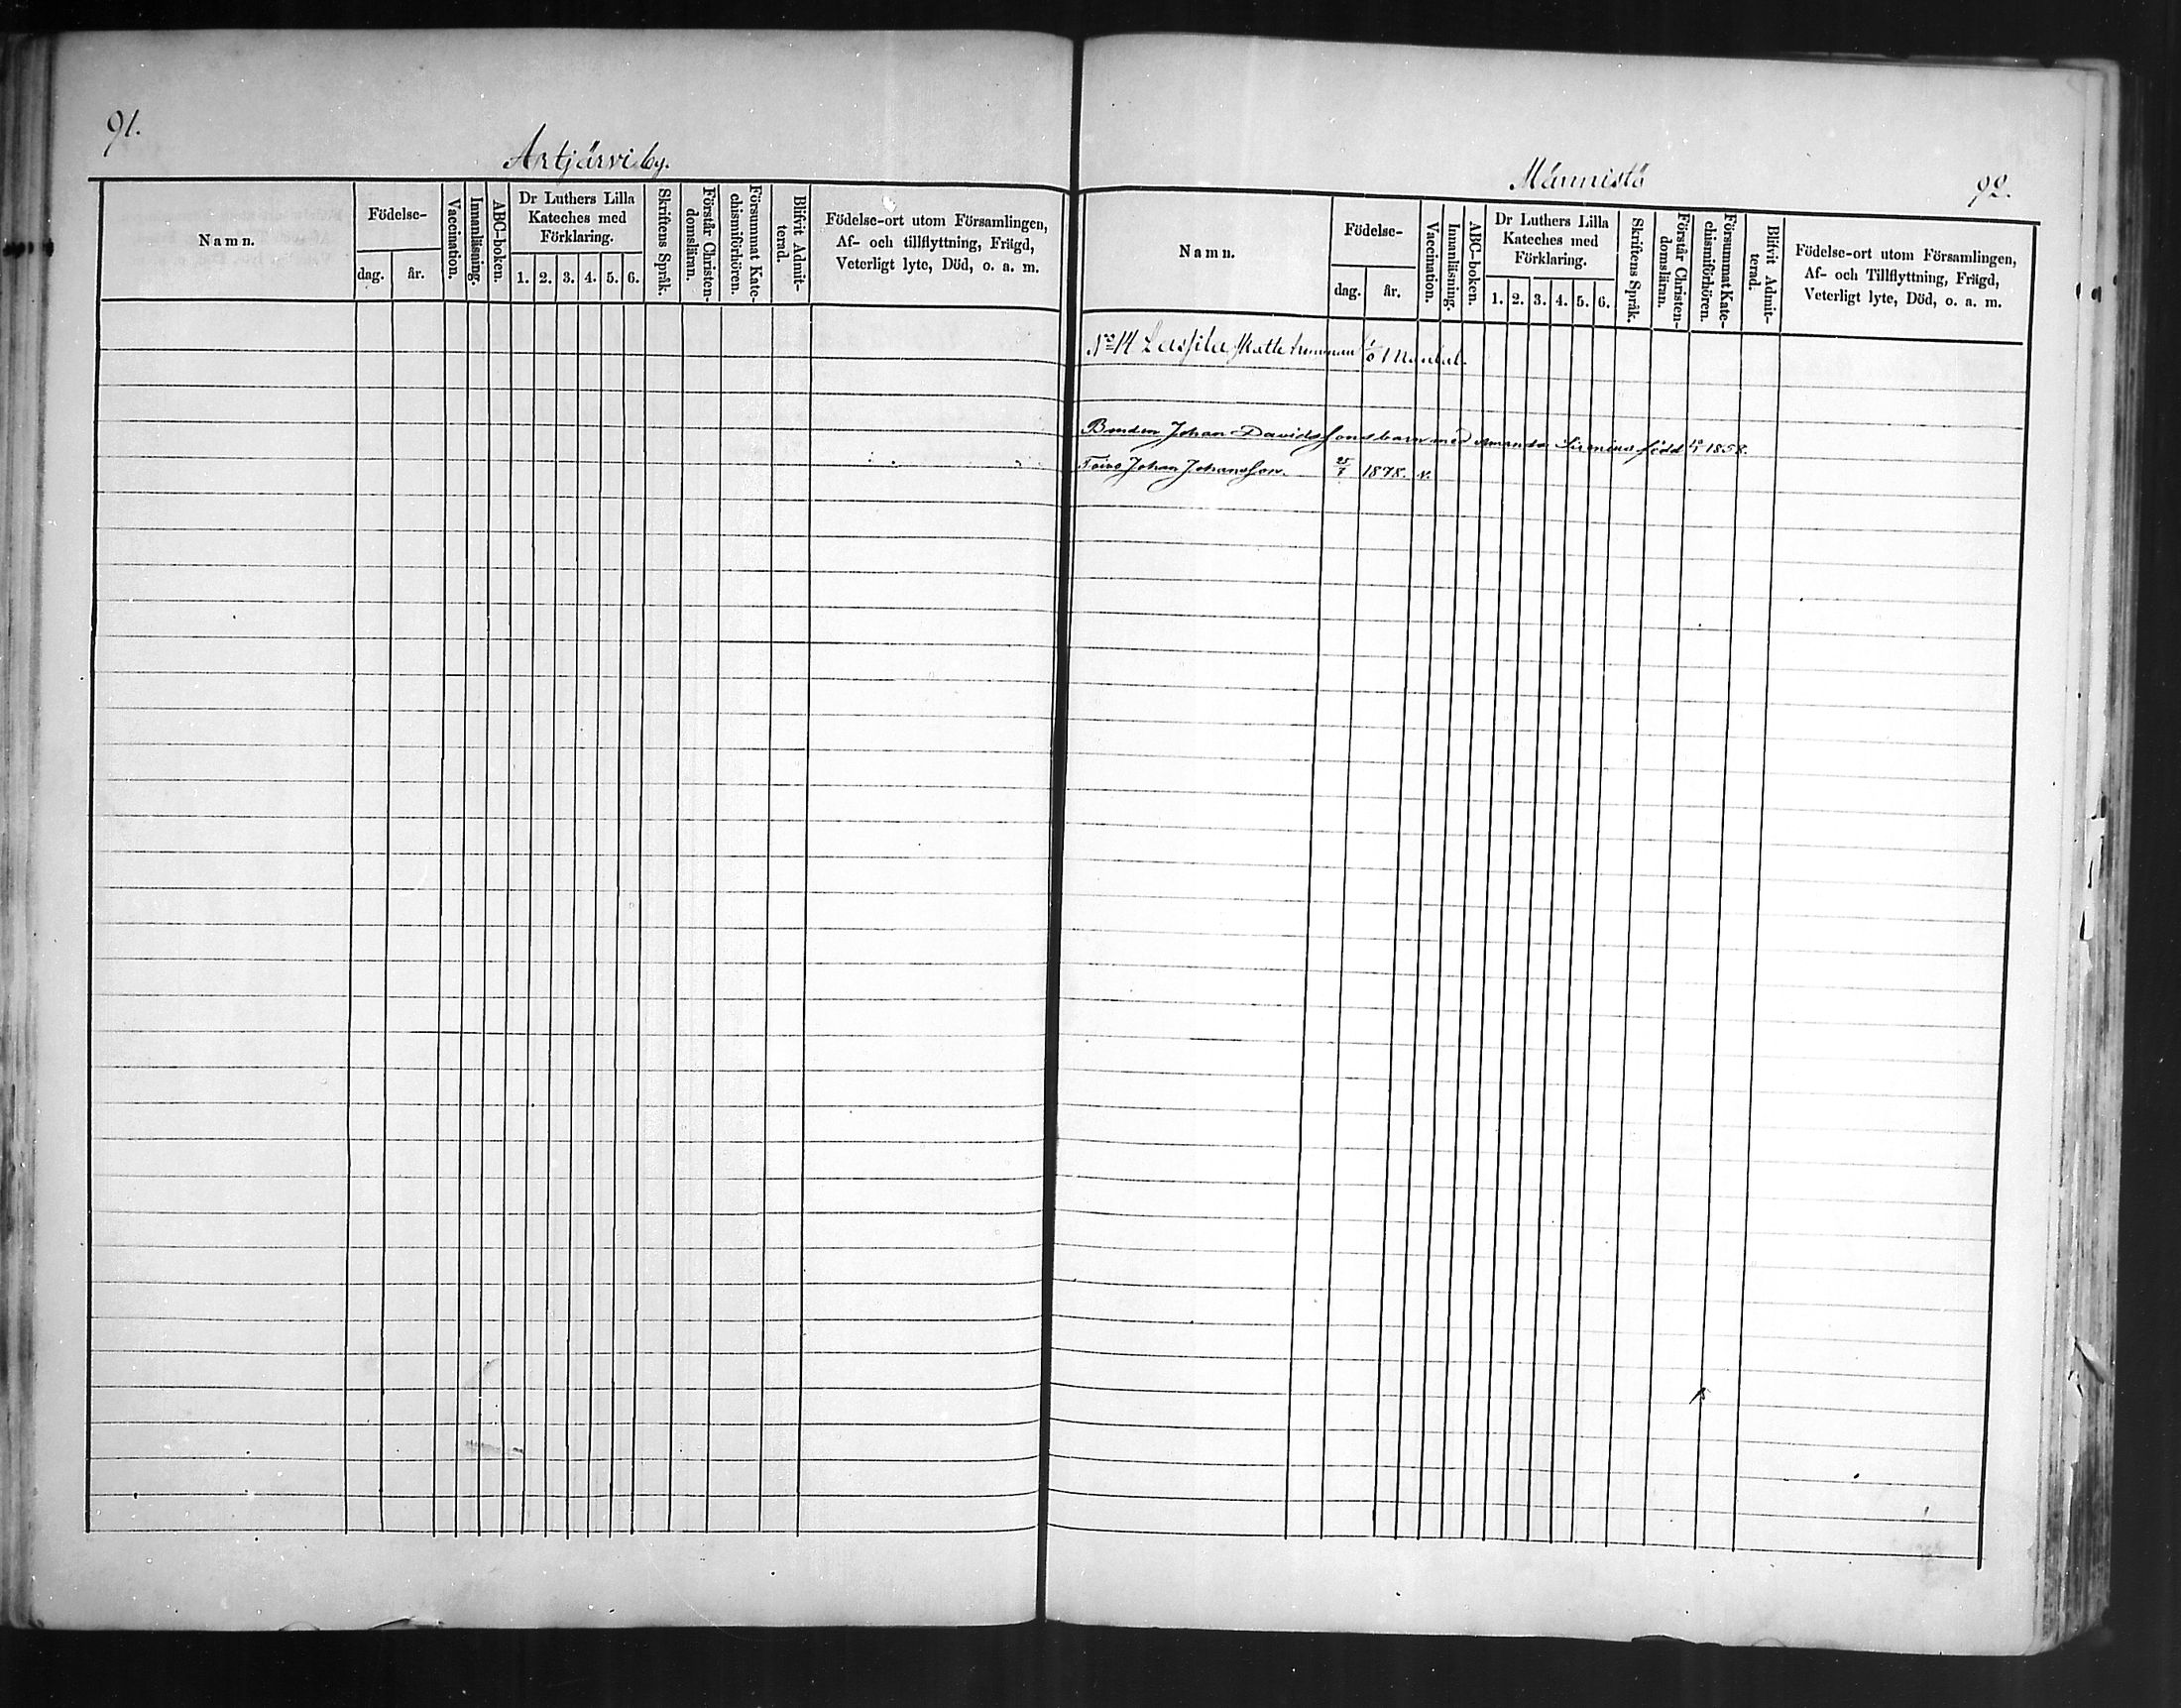 91.
Artjärvi by.
Namn.
Födelse-
dag.
år.
Vaccination.
Innanläsning.
ABC-boken.
Dr Luthers Lilla
Kateches med
Förklaring.
1. 2. 3. 4. 5. 6.
Skriftens Språk.
Förstår Christen-
domsläran.
Försummat Kate-
chismiförhören.
Blifvit Admit-
terad.
Födelse-ort utom Församlingen,
Af- och tillflyttning, Frägd,
Veterligt lyte, Död, o. a. m.
Männistö
92.
Namn.
Födelse-
dag.
år.
Vaccination.
Innanläsning.
ABC-boken.
Dr Luthers Lilla
Kateches med
Förklaring.
1. 2. 3. 4. 5. 6.
Skriftens Språk.
Förstår Christen-
domsläran.
Försummat Kate-
chismiförhören.
Blifvit Admit-
terad.
Födelse-ort utom Församlingen,
Af- och Tillflyttning, Frägd,
Veterligt lyte, Död, o. a. m.
No 14 Lassila Skatte hemman 1 Mantal.
Bonden Johan Davidssons barn med Amanda Sirenius född 1858.
Toivo Johan Johansson. 1878. v.